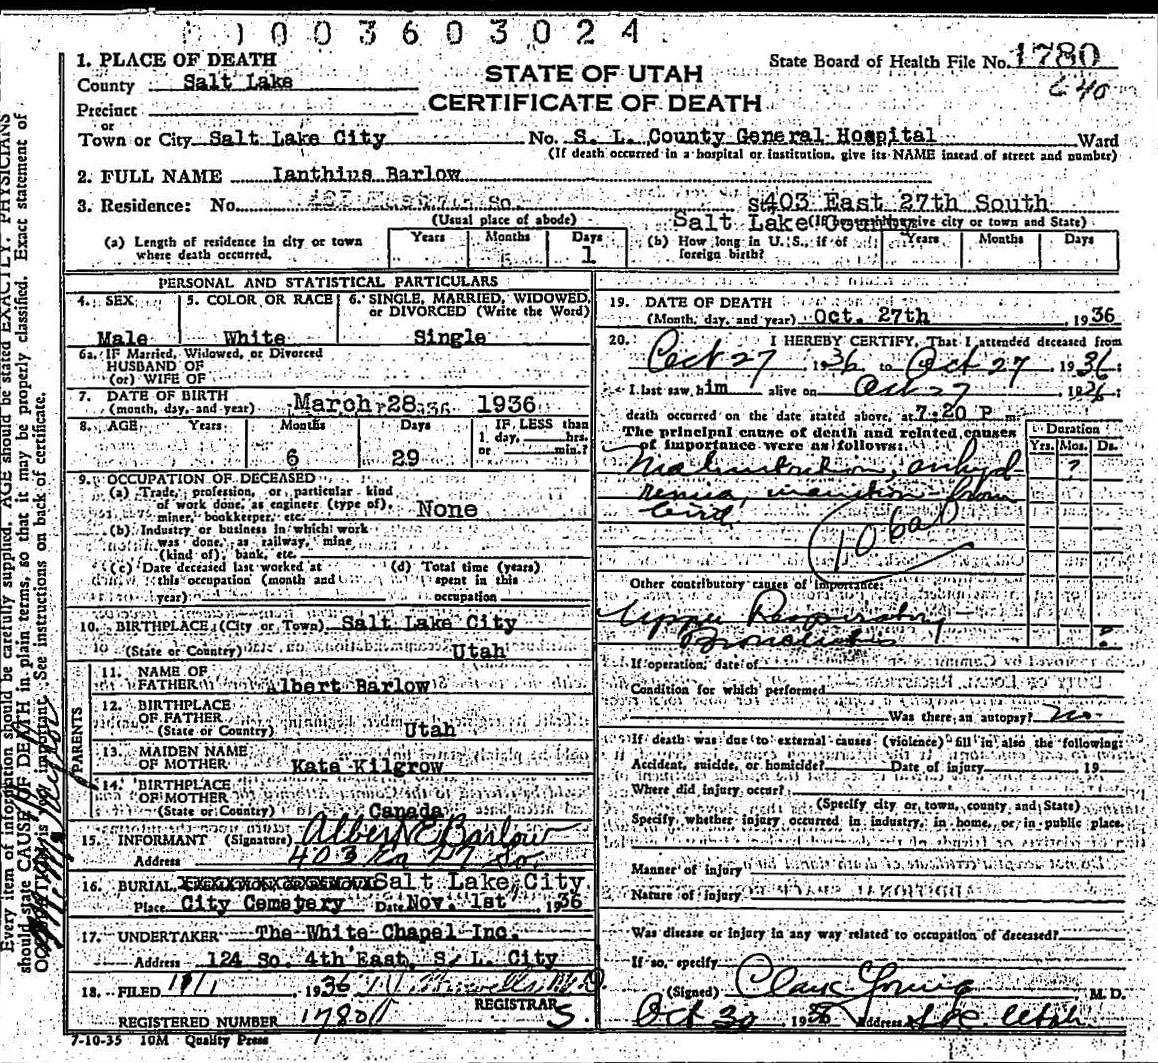 1003603024
1. PLACE OF DEATH
County Salt Lake
STATE OF UTAH
State Board of Health File No. 1780
640
Precinct
CERTIFICATE OF DEATH
or
Town or City Salt Lake City No. S. L. County General Hospital Ward
(If death occurred in a hospital or institution, give its NAME instead of street and number)
2. FULL NAME Ianthius Barlow
3. Residence: No. St. 403 East 27th South
(Usual place of abode)
Salt Lake County
(a) Length of residence in city or town where death occurred. Years Months Days 1
(b) How long in U. S., if of foreign birth? Years Months Days
PERSONAL AND STATISTICAL PARTICULARS
4. SEX 5. COLOR OR RACE 6. SINGLE, MARRIED, WIDOWED, or DIVORCED (Write the Word)
Male White Single
6a. IF Married, Widowed, or Divorced
HUSBAND OF
(or) WIFE OF
7. DATE OF BIRTH
(month, day, and year) March 28 1936
8. AGE Years Months Days IF LESS than
1 day, hrs.
or min.?
6 29
9. OCCUPATION OF DECEASED
(a) Trade, profession, or particular kind
of work done, as engineer (type of),
miner, bookkeeper, etc. None
(b) Industry or business in which work
was done, as railway, mine
(kind of), bank, etc.
(c) Date deceased last worked at
this occupation (month and
year)
(d) Total time (years)
spent in this
occupation
10. BIRTHPLACE (City or Town) Salt Lake City
(State or Country) Utah
PARENTS
11. NAME OF
FATHER Albert Barlow
12. BIRTHPLACE
OF FATHER
(State or Country) Utah
13. MAIDEN NAME
OF MOTHER Kate Kilgrow
14. BIRTHPLACE
OF MOTHER
(State or Country) Canada
15. INFORMANT (Signature) Albert E Barlow
Address 403 Ea 27 So.
16. BURIAL, CREMATION OR REMOVAL Salt Lake City
Place City Cemetery Date Nov. 1st 1936
17. UNDERTAKER The White Chapel Inc.
Address 124 So. 4th East, S. L. City
18. FILED 11/1, 1936
REGISTRAR
REGISTERED NUMBER 1780 S.
7-10-35 10M Quality Press
19. DATE OF DEATH
(Month, day, and year) Oct. 27th 1936
20. I HEREBY CERTIFY, That I attended deceased from
Oct 27 1936 to Oct 27 1936;
I last saw him alive on Oct 27 1936;
death occurred on the date stated above, at 7:20 P m.
The principal cause of death and related causes
of importance were as follows:
Duration
Yrs. Mos. Ds.
Malnutrition, anhyd
remia, inanition from
birth
?
Other contributory causes of importance:
Upper Respiratory
Bronchitis ?
If operation, date of
Condition for which performed
Was there an autopsy? No
If death was due to external causes (violence) fill in also the following:
Accident, suicide, or homicide? Date of injury 19
Where did injury occur?
(Specify city or town, county and State)
Specify whether injury occurred in industry, in home, or in public place.
Manner of injury
Nature of injury
Was disease or injury in any way related to occupation of deceased?
If so, specify
(Signed) Clark Young M. D.
Oct 30 1936 Address S.L.C. Utah
Every item of information should be carefully supplied. AGE should be stated EXACTLY. PHYSICIANS
should state CAUSE OF DEATH in plain terms, so that it may be properly classified. Exact statement of
OCCUPATION is very important. See instructions on back of certificate.